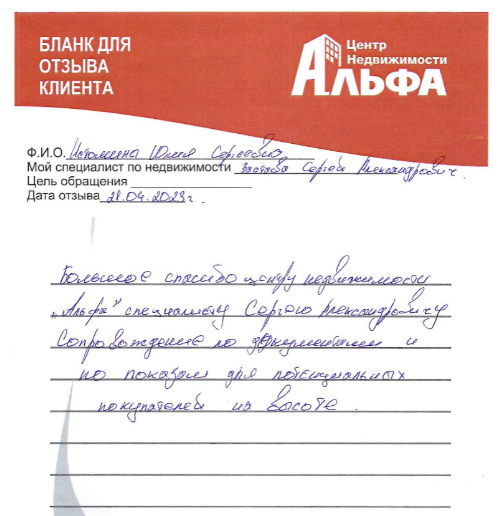 БЛАНК ДЛЯ
ОТЗЫВА
КЛИЕНТА
Центр
Недвижимости
АЛЬФА
Ф.И.О. Истомина Юлия Сергеевна
Мой специалист по недвижимости Застава Сергей Александрович.
Цель обращения
Дата отзыва 28.04.2023г.
Большое спасибо центру недвижимости
„Альфа" специалисту Сергею Александровичу
Сопровождение по документам и
по показам для потенциальных
покупателей на высоте.